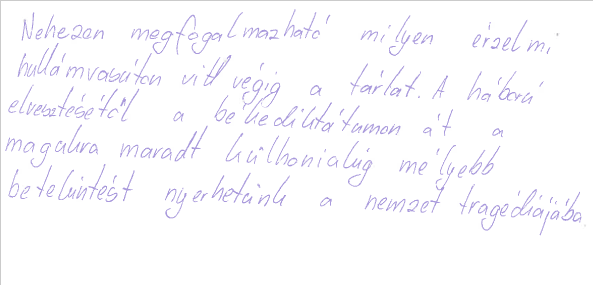 Nehezen megfogalmazható milyen érzelmi
hullámvasúton vitt végig a tárlat. A háború
elvesztésétől a békediktátumon át a
magukra maradt külhoniakig mélyebb
betekintést nyerhetünk a nemzet tragédiájába.